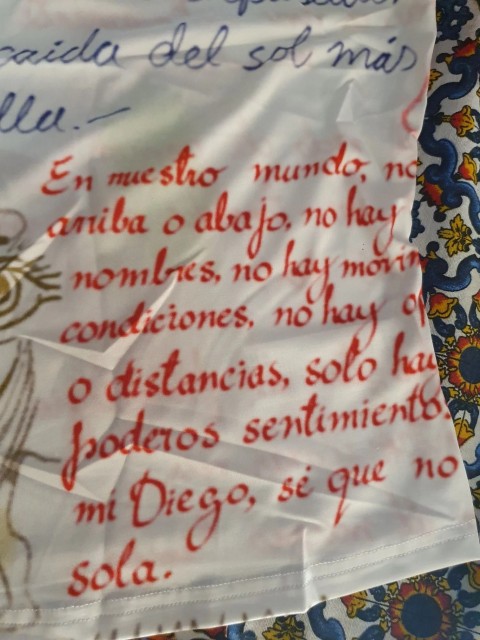 caida del sol más
lla.—
En nuestro mundo, no
arriba o abajo, no hay
nombres, no hay movim
condiciones, no hay o
o distancias, solo hay
poderos sentimiento.
mi Diego, sé que no
sola.